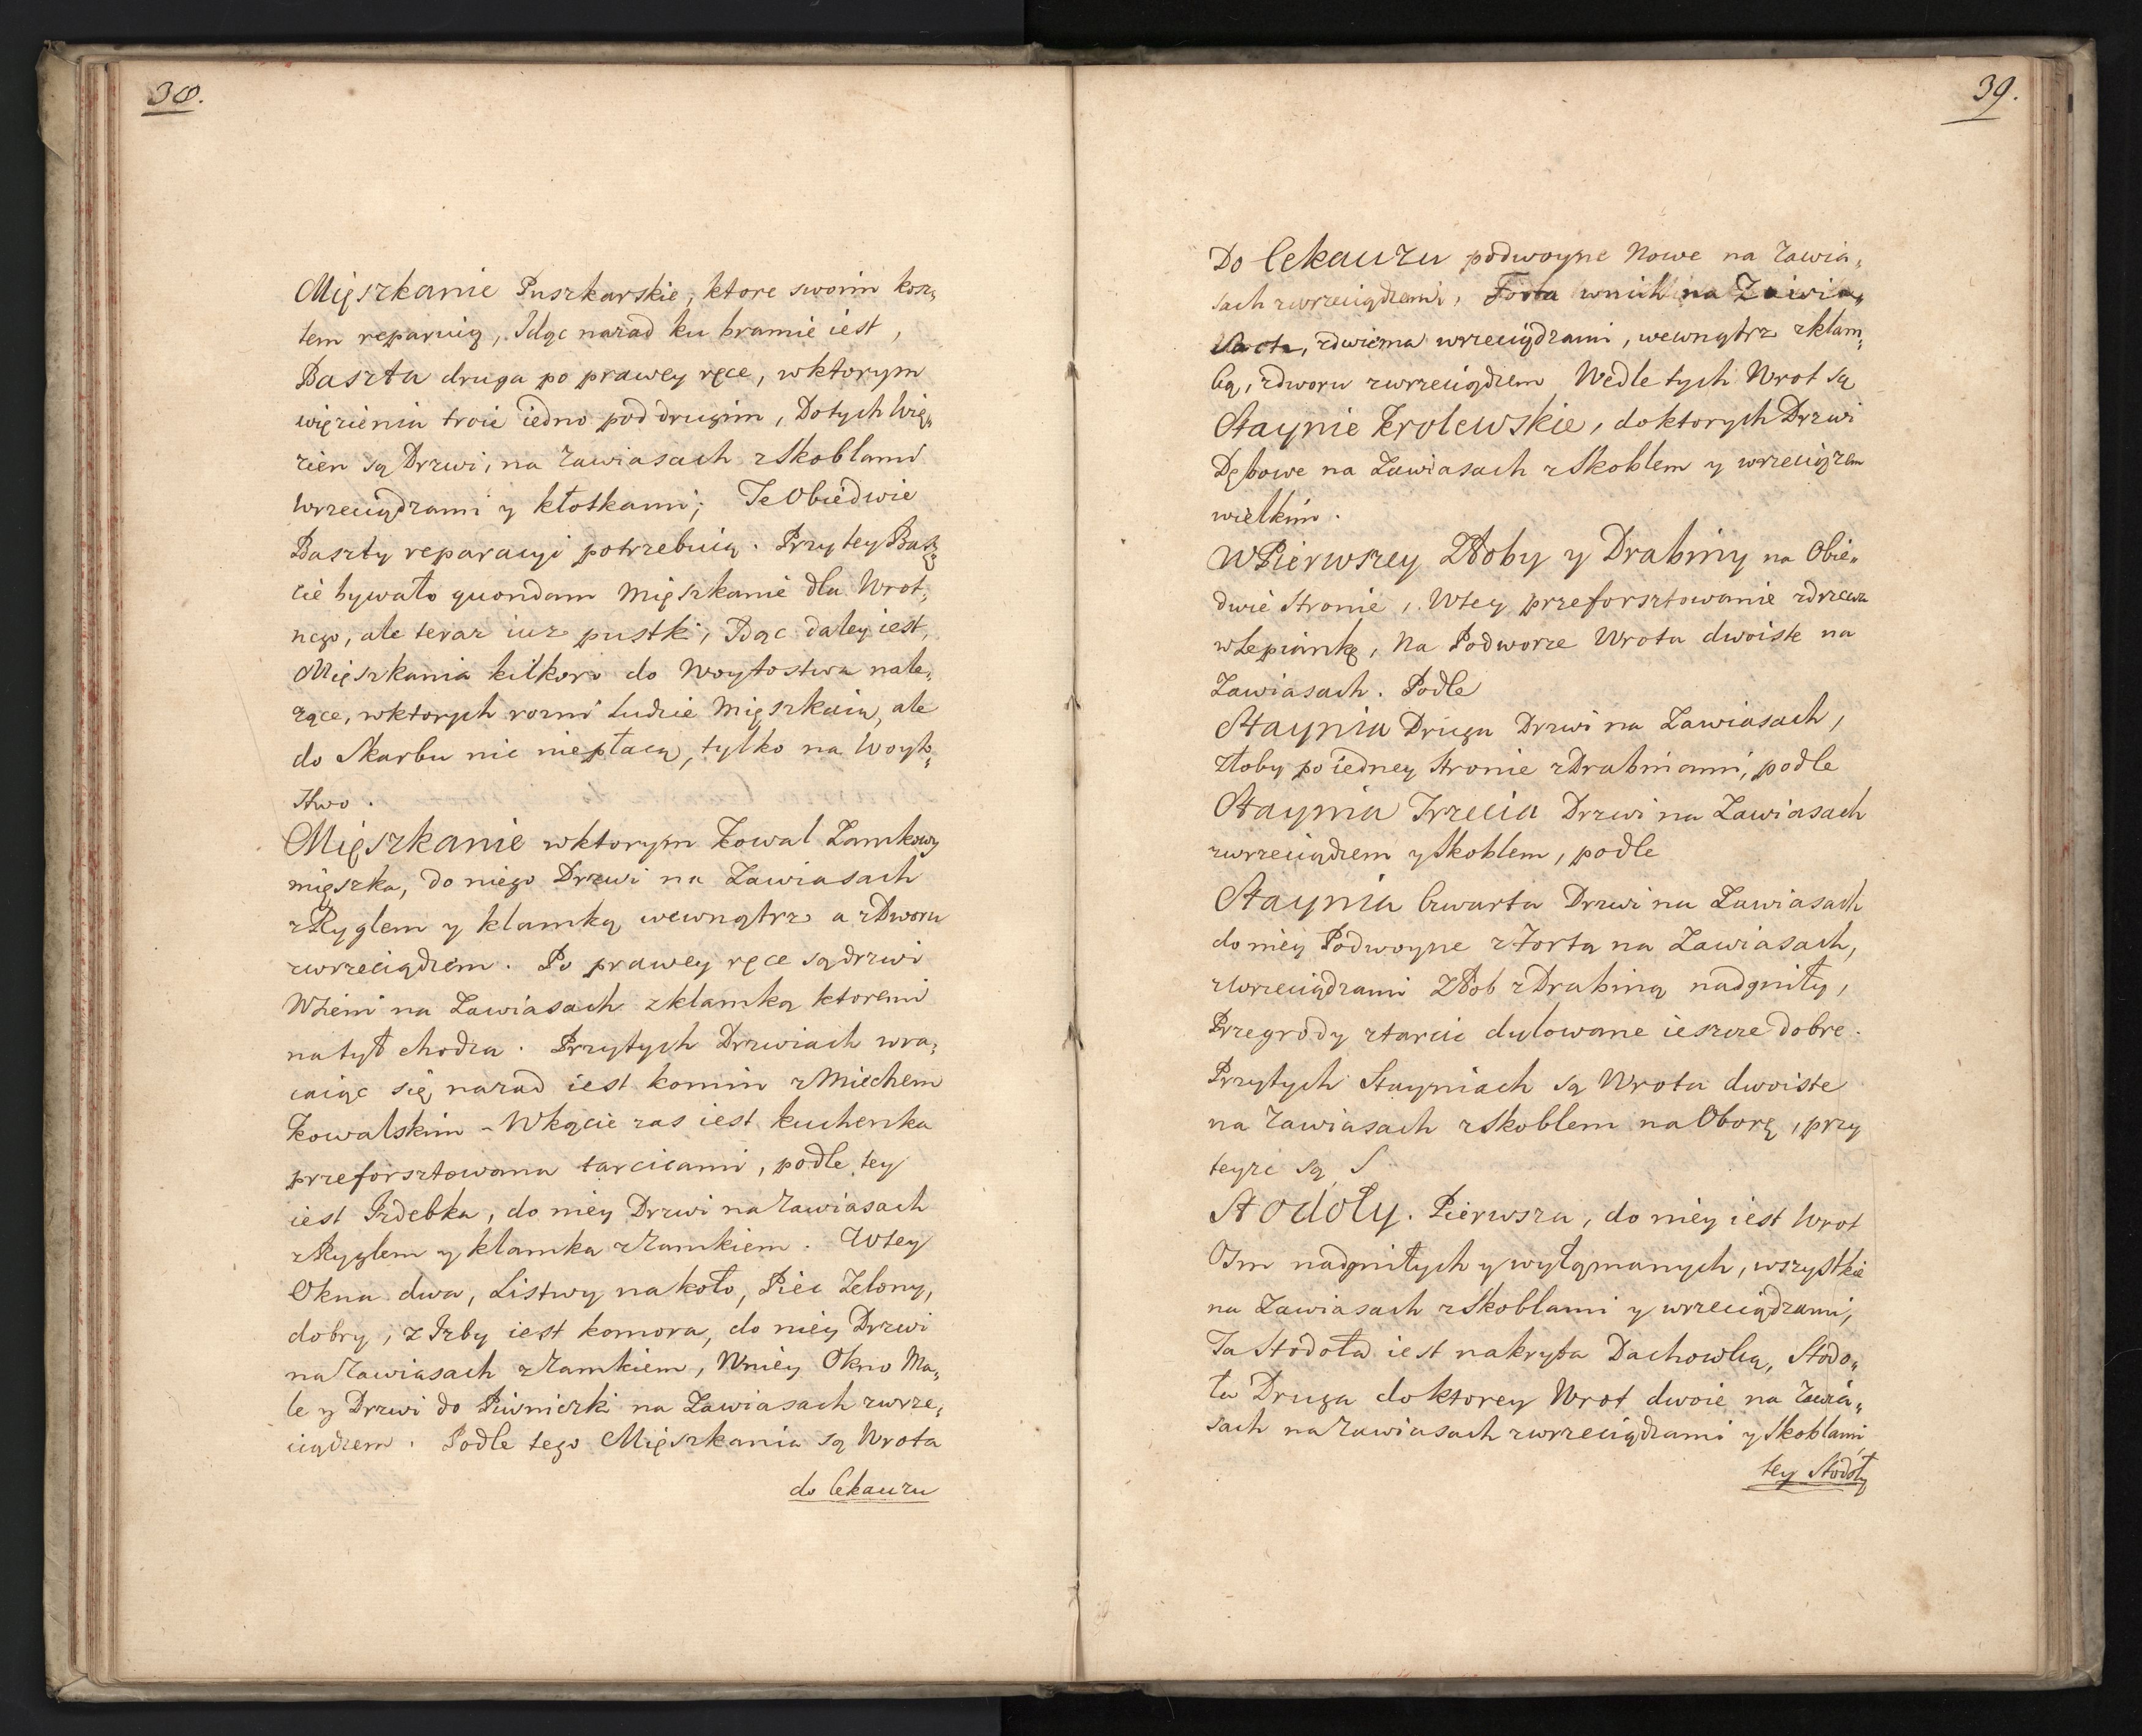 38.
Mięszkanie Puszkarskie, ktore swoim kosz„
tem reparuią, Idąc nazad ku bramie iest,
Baszta druga po prawey ręce, wktorym
więzieniu troie iedno pod drugim, Dotych Wię„
zien są Drzwi, na zawiasach z Skoblami
wrzeciądzami y kłotkami; Te Obiedwie
Baszty reparacyi potrzebuią. Przy tey Basz„
cie bywało quondam Mięszkanie dla Wrot„
nego, ale teraz iuz pustki, Idąc daley iest,
Mięszkania kilkoro do Woytostwa nale„
zące, wktorych rozni ludzie Mięszkaią, ale
do Skarbu nic niepłacą, tylko na Woyto„
stwo.
Mięszkanie wktorym Kowal Zamkowy
mięszka, do niego Drzwi na Zawiasach
z Ryglem y klamką wewnątrz a z Dworu
zwrzeciądzem. Po prawey ręce są drzwi
W Sieni na Zawiasach z klamką ktoremi
na tył chodza. Przytych Drzwiach wra„
caiąc się nazad iest komin z Miechem
Kowalskim - W kącie zas iest kuchenka
przeforsztowana tarcicami, podle tey
iest Izdebka, do niey Drzwi na Zawiasach
z Ryglem y klamka z Zamkiem. W tey
Okna dwa, Listwy na koło, Piec Zelony,
dobry, z Izby iest komora, do niey Drzwi
na Zawiasach z Zamkiem, W niey Okno Ma„
łe y Drzwi do Piwniczki na Zawiasach zwrze„
ciądzem. Podle tego Mięszkania są Wrota
do Cekauzu
39.
Do Cekauzu podwoyne Nowe na Zawia„
sach zwrzeciądzami, Forta wnich na Zawia„
sach, zdwiema wrzeciądzami, wewnątrz z klam„
ką, z dworu zwrzeciądzem Wedle tych Wrot są
Staynie Krolewskie, do ktorych Drzwi
Dębowe na Zawiasach z Skoblem y wrzeciązem
wielkim.
W Pierwszey Złoby y Drabiny na Obie„
dwie Stronie, W tey przeforsztowanie z drzewa
w Lepiankę, Na Podworze Wrota dwoiste na
Zawiasach. Podle
Staynia Druga Drzwi na Zawiasach,
złoby po iedney stronie z Drabinami, podle
Staynia Trzecia Drzwi na Zawiasach
zwrzeciądzem y Skoblem, podle
Staynia Czwarta Drzwi na Zawiasach
do niey Podwoyne z Fortą na Zawiasach,
z Wrzeciądzami Złob z Drabiną nadgniły,
Przegrody z tarcic dulowane ieszcze dobre.
Przytych Stayniach są Wrota dwoiste
na Zawiasach z Skoblem na Oborę, przy
teyze są S
Stodoły. Pierwsza, do niey iest Wrot
Osm nadgniłych y wyłąmanych, wszystkie
na Zawiasach z Skoblami y wrzeciądzami,
Ta Stodoła iest nakryta Dachowką, Stodo„
ła Druga do ktorey Wrot dwoie na Zawia„
sach na Zawiasach zwrzeciądzami y Skoblami
tey Stodoły